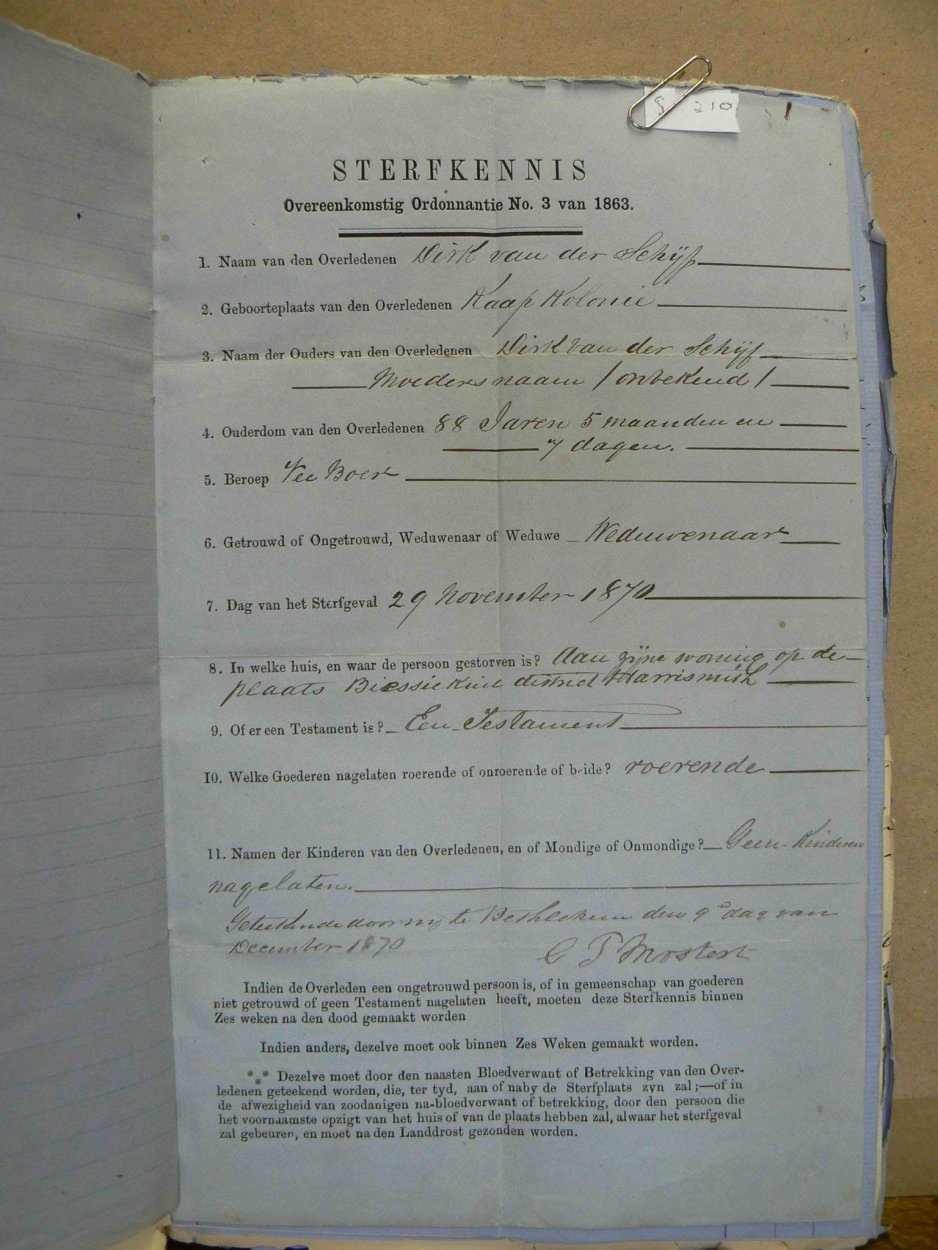 210
STERFKENNIS
Overeenkomstig Ordonnantie No. 3 van 1863.
1. Naam van den Overledenen Dirk van der Schijf
2. Geboorteplaats van den Overledenen Kaap Kolonie
3. Naam der Ouders van den Overledenen Dirk van der Schijf
Moeders naam / onbekend /
4. Ouderdom van den Overledenen 88 Jaren 5 maanden en
7 dagen.
5. Beroep Vee Boer
6. Getrouwd of Ongetrouwd, Weduwenaar of Weduwe Weduwenaar
7. Dag van het Sterfgeval 29 November 1870
8. In welke huis, en waar de persoon gestorven is? Aan zijne woning op de
plaats district Harrismith
9. Of er een Testament is? Een Testament
10. Welke Goederen nagelaten roerende of onroerende of beide? roerende
11. Namen der Kinderen van den Overledenen, en of Mondige of Onmondige? Geen Kinderen
nagelaten.
door my te Bethlehem den 9de dag van
December 1870 C T Mostert
Indien de Overleden een ongetrouwd persoon is, of in gemeenschap van goederen
niet getrouwd of geen Testament nagelaten heeft, moeten deze Sterfkennis binnen
Zes weken na den dood gemaakt worden
Indien anders, dezelve moet ook binnen Zes Weken gemaakt worden.
*** Dezelve moet door den naasten Bloedverwant of Betrekking van den Over-
ledenen geteekend worden, die, ter tyd, aan of naby de Sterfplaats zyn zal;—of in
de afwezigheid van zoodanigen na-bloedverwant of betrekking, door den persoon die
het voornaamste opzigt van het huis of van de plaats hebben zal, alwaar het sterfgeval
zal gebeuren, en moet na den Landdrost gezonden worden.